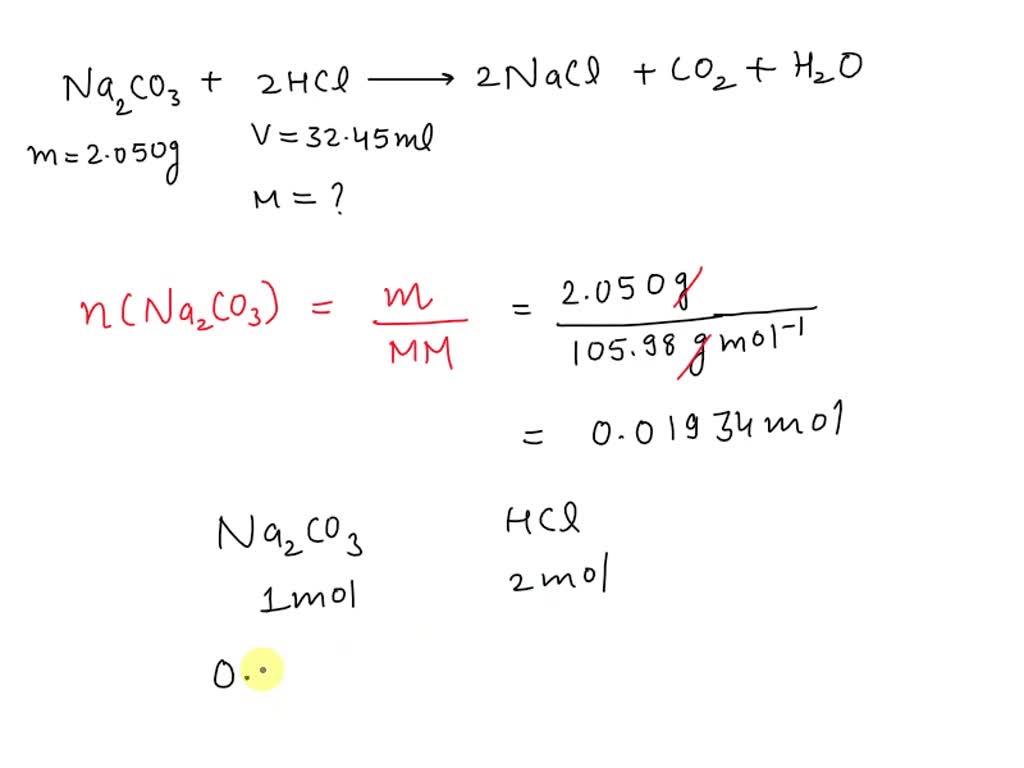 Na₂CO₃ + 2HCl ⟶ 2NaCl + CO₂ + H₂O
m = 2.050g V = 32.45ml
M = ?
n(Na₂CO₃) = m/MM = 2.050g/105.98 g mol⁻¹
= 0.01934 mol
Na₂CO₃ HCl
1mol 2mol
0.